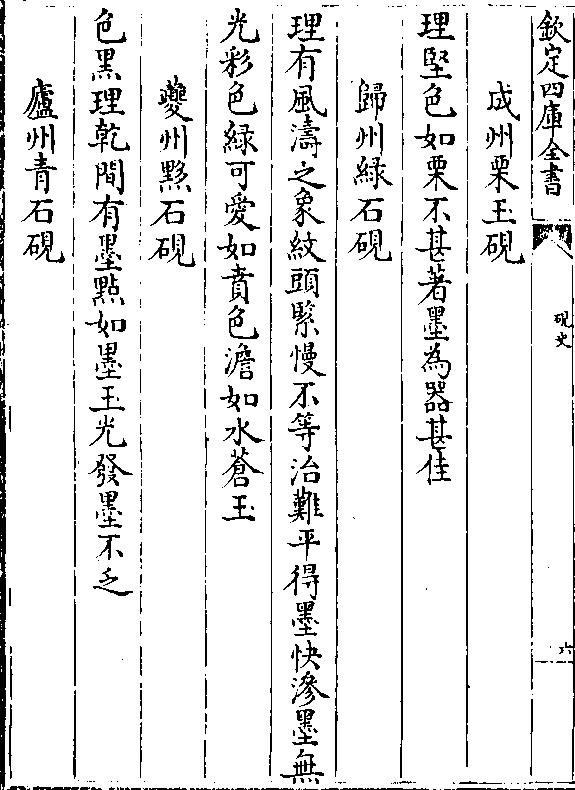 欽定四庫全書
硯史
六
成州栗玉硯
理堅色如栗不甚著墨為器甚佳
歸州綠石硯
理有風濤之象紋頭緊慢不等治難平得墨快滲墨無
光彩色綠可愛如賁色澹如水蒼玉
夔州黟石硯
色黑理乾間有墨點如墨玉光發墨不乏
廬州青石硯